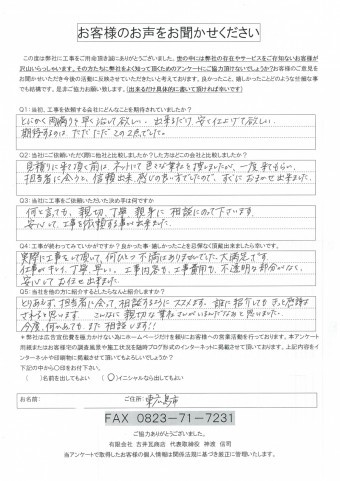 お客様のお声をお聞かせください
この度は弊社に工事をご用命頂き誠にありがとうございました。世の中には弊社の存在やサービスをご存知ないお客様が
沢山いらっしゃいます。その方たちに弊社をよく知って頂くためのアンケートにご協力頂けないでしょうか？お客様のご意見を
お聞かせいただき今後の活動に反映させていただきたいと考えております。良かったこと、嬉しかったことどのような些細な事
でも結構です。是非ご協力お願い致します。（出来るだけ具体的に書いて頂ければ幸いです）
Q1：当初、工事を依頼する会社にどんなことを期待されていましたか？
とにかく雨漏りを早くなおして欲しい。出来るだけ、安く仕上げて欲しい。
期待するのは、ただただこの2点でした。
Q2：当社にご依頼いただく際に他社と比較しましたか？した方はどこの会社と比較しましたか？
見積りに来て頂く前は、ネットにて色々な業社を検しましたが、一度来てもらい、
担当者に会うと、信頼出来、感じの良い方でしたので、すぐにおまかせ出来ました。
Q3：当社にご依頼いただいた決め手は何ですか
何と言っても、親切、丁寧、親身に相談にのって下さいます。
安心して、工事を依頼する事が出来ました。
Q4：工事が終わってみていかがですか？良かった事・嬉しかったことを忌憚なく頂戴出来ましたら幸いです。
実際に工事をして頂いて、何ひとつ不満はありませんでした。大満足です。
仕事がキレイ、丁寧、早い。工事内容も、工事費用も、不透明な部分がなく、
安心してお任せ出来ました。
Q5：当社を他の方に紹介するとしたらなんと紹介しますか？
とりあえず、担当者に会って、相談するようにススメます。誰に紹介しても、きっと感謝
されると思います。こんなに親切な業者さんがいるんだなぁと思いました。
今度、何かあっても、また相談します!!
＊弊社は広告宣伝費を極力かけない為にホームページだけを頼りにお客様への営業活動を行っております。本アンケート
用紙またはお客様宅の調査風景や施工状況を随時ブログ形式のインターネットに掲載させて頂いております。上記内容をイ
ンターネットや印刷物に掲載させて頂いてもよろしいでしょうか？
下記の中から○印をお付下さい。
（　）名前を出してもよい　（○）イニシャルなら出してもよい
お名前：　ご住所：東広島市
FAX 0823-71-7231
ご協力ありがとうございました。
有限会社 古井瓦商店 代表取締役 神渡 信司
当アンケートで取得したお客様の個人情報は関係法規に基づき厳正に管理致します。